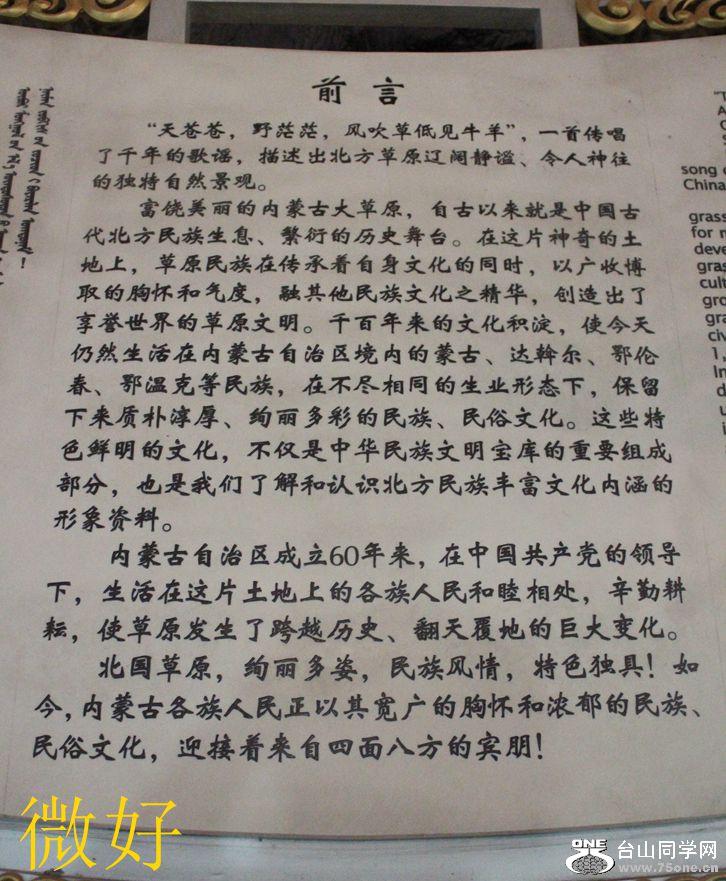 前言
“天苍苍，野茫茫，风吹草低见牛羊”，一首传唱
了千年的歌谣，描述出北方草原辽阔静谧、令人神往
的独特自然景观。
富饶美丽的内蒙古大草原，自古以来就是中国古
代北方民族生息、繁衍的历史舞台。在这片神奇的土
地上，草原民族在传承着自身文化的同时，以广收博
取的胸怀和气度，融其他民族文化之精华，创造出了
享誉世界的草原文明。千百年来的文化积淀，使今天
仍然生活在内蒙古自治区境内的蒙古、达斡尔、鄂伦
春、鄂温克等民族，在不尽相同的生业形态下，保留
下来质朴淳厚、绚丽多彩的民族、民俗文化。这些特
色鲜明的文化，不仅是中华民族文明宝库的重要组成
部分，也是我们了解和认识北方民族丰富文化内涵的
形象资料。
内蒙古自治区成立60年来，在中国共产党的领导
下，生活在这片土地上的各族人民和睦相处，辛勤耕
耘，使草原发生了跨越历史、翻天覆地的巨大变化。
北国草原，绚丽多姿，民族风情，特色独具！如
今，内蒙古各族人民正以其宽广的胸怀和浓郁的民族、
民俗文化，迎接着来自四面八方的宾朋！
song
China
for
微好
ONE
台山同学网
www.75one.cn